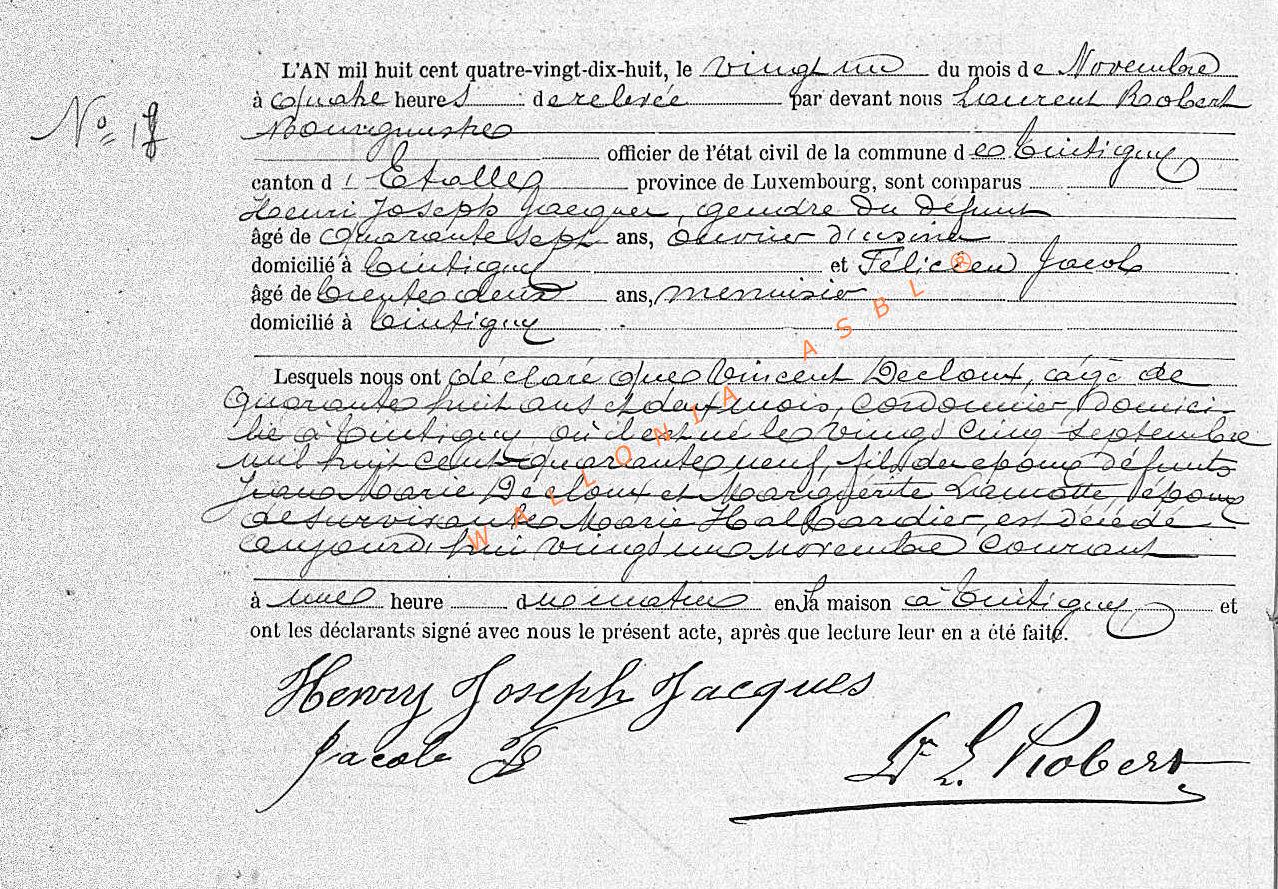 L'AN mil huit cent quatre-vingt-dix-huit, le vingt un du mois de Novembre
No
à quatre heures de relevée par devant nous Laurent Robert
Bourgmestre
officier de l'état civil de la commune de Tintigny
canton d'Etalle province de Luxembourg, sont comparus
Henri Joseph Jacques, gendre du défunt
âgé de quarante sept ans, ouvrier d'usine
domicilié à Tintigny et Félicien Jacob
âgé de trente deux ans, menuisier
domicilié à Tintigny
Lesquels nous ont déclaré que Vincent Decloux, âgé de
quarante huit ans et deux mois, cordonnier, domici-
lié à Tintigny, où il est né le vingt cinq septembre
mil huit cent quarante neuf, fils des époux défunts
Jean Marie Décloux et Marguérite Lamotte, époux
de survivante Marie Halbardier, est décédé
aujourd'hui vingt un novembre courant
à une heure du matin en la maison à Tintigny et
ont les déclarants signé avec nous le présent acte, après que lecture leur en a été faite.
Henry Joseph Jacques
Jacob F
Dr L. Robert
WALLONIA ASBL ®